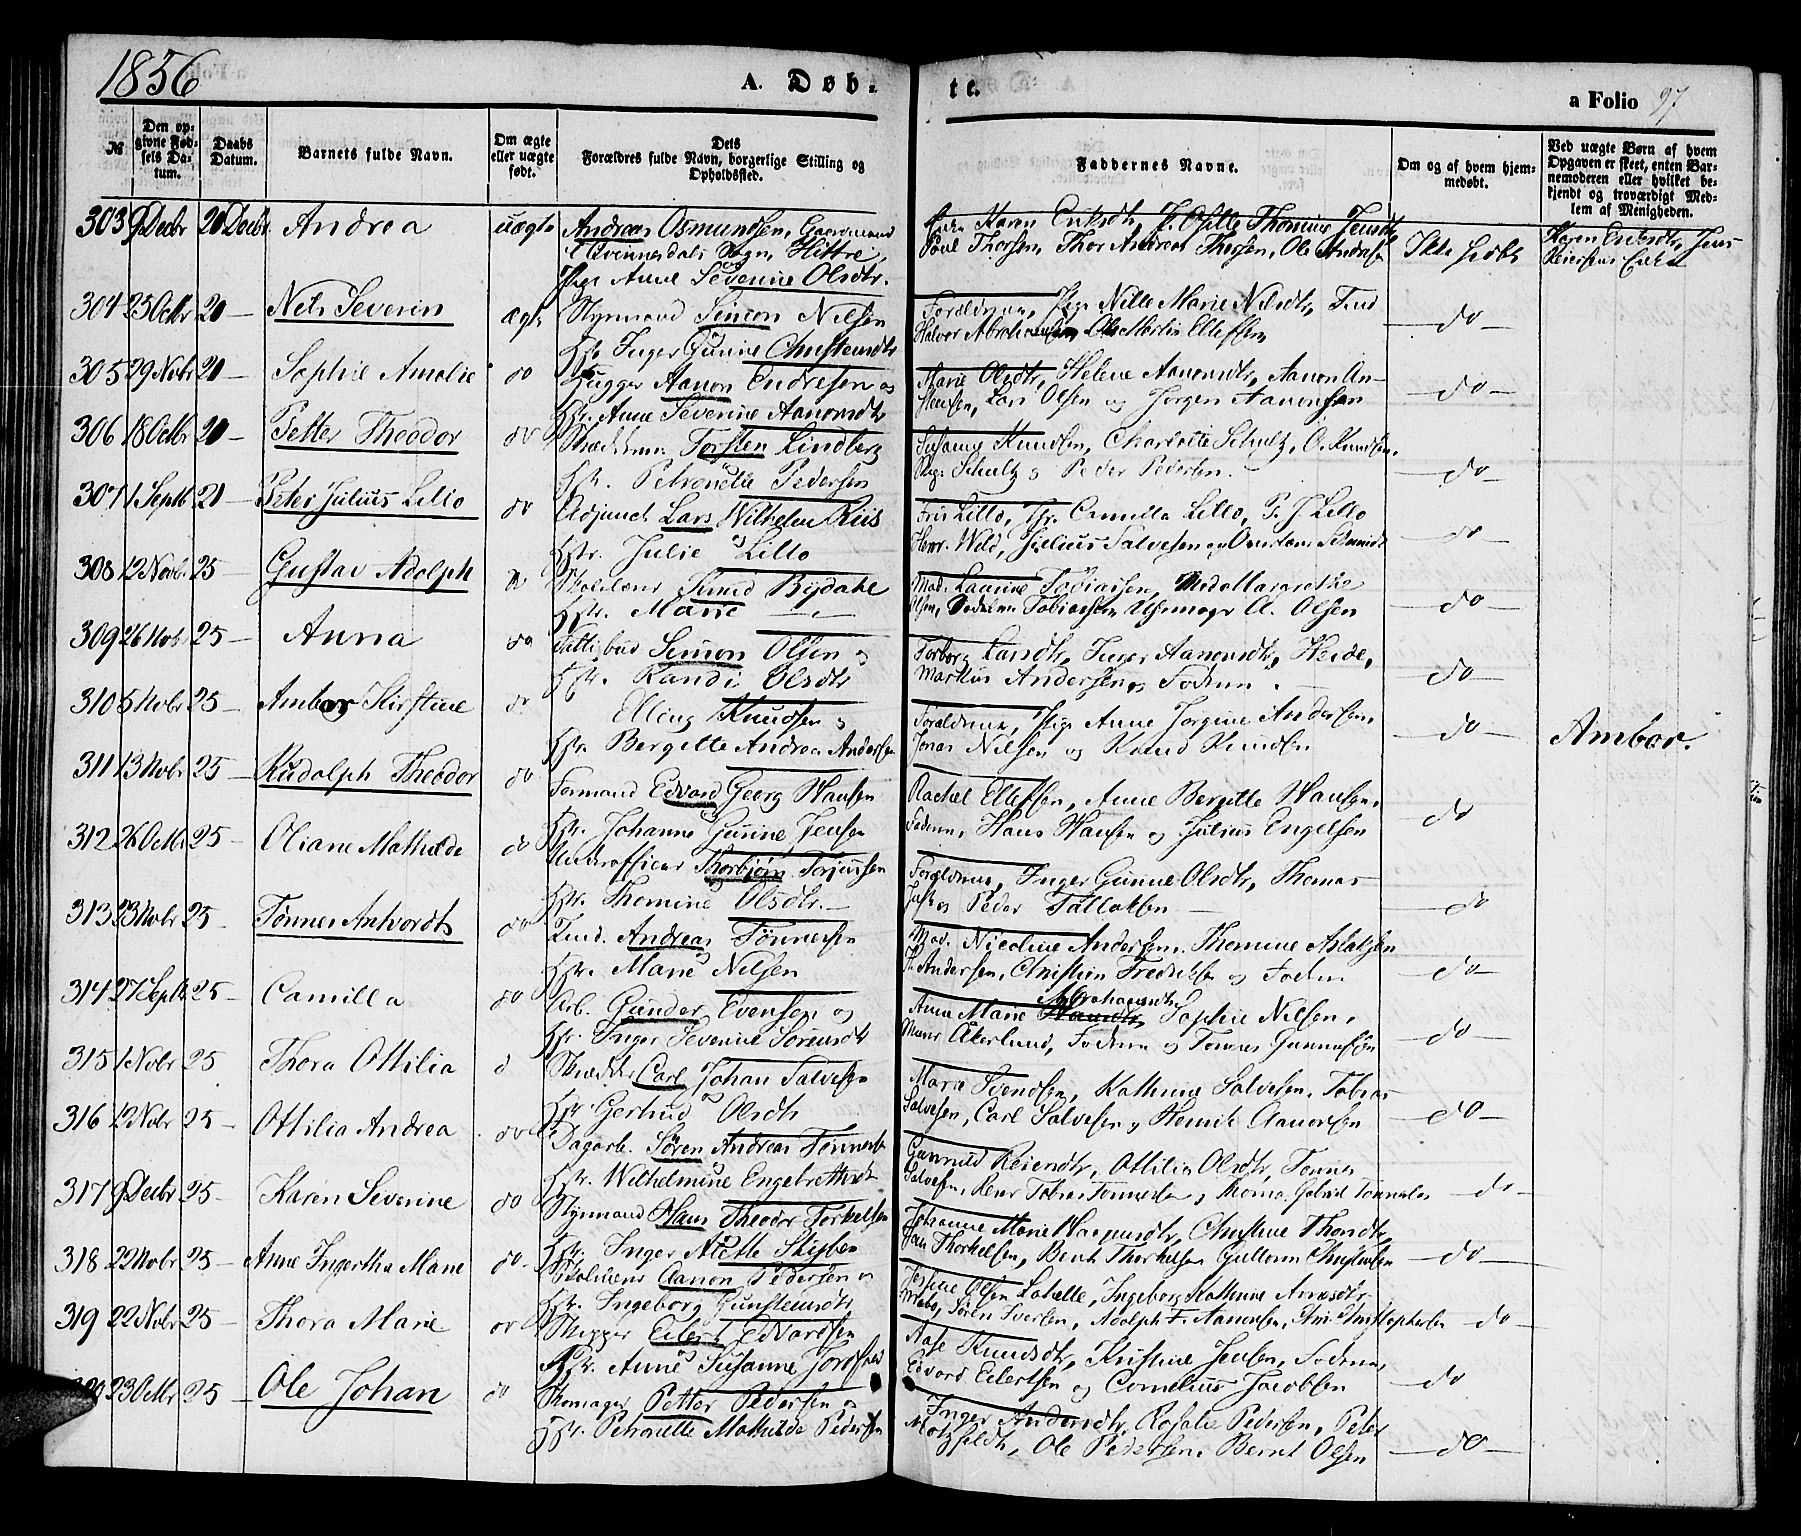 1856
A. Døb-
te.
a Folio 97
№
Den op-
givne Fød-
sels Da-
tum.
Daabs
Datum.
Barnets fulde Navn.
Om ægte
eller uægte
født.
Dets
Forældres fulde Navn, borgerlige Stilling og
Opholdssted.
Faddernes Navne.
Om og af hvem hjem-
medøbt.
Ved uægte Børn af hvem
Opgaven er skeet, enten Bar-
nemoderen eller hvilket be-
kjendt og troværdigt Med-
lem af Menigheden.
303 9 Decbr 20 Decbr Andrea uægte Andreas Osmundsen, Gaardmand
Qvinnesdals Sogn, Hittrø,
Pige Anne Severine Olsdtr.
Karen Eriksdtr, Thomine Jensdtr
Poul Thorsen, Thor Andreas Thorsen, Ole Andersen
Ikke hjdbt
Karen Eriksdtr, Jens
Reiersens Enke
304 25 Octbr 20 — Nels Severin ægte Styrmand Simon Nilsen
Hstr. Inger Gunine Christensdtr
Forældrene, Pige Nille Marie Nilsdtr,
Halvor Abrahamsen, Ole Martin Ellefsen
— do —
305 29 Novbr 20 — Sophie Amalie do Hugger Aanon Endresen og
Hstr. Anne Severine Aanonsdtr
Marie Olsdtr, Helene Aanonsdtr, Aanon An-
Hansen, Lars Olsen og Jørgen Aanonsen
— do —
306 18 Octbr 20 — Petter Theodor do Skrædderm. Torsten Lindberg
Hstr. Petronelle Pedersen
Susanng Knudsen, Charlotte Schultz, O. Knudsen,
Schultz og Peder Pedersen.
— do —
307 1 Septb 21 Peter Julius Lillo do Adjunct Lars Wilhelm Riis
Hstr. Julie Lillo
Frk Lillo, Jfr. Camilla Lillo, P. J. Lillo
Herr. Wild, Julius Salvesen og Overlærer Schmidt
— do —
308 12 Novbr 25 — Gustav Adolph do Skolelærer Knud Bydahl
Hstr. Marie —
Mad. Laurine Tobiassen, Mad. Margrethe
Olsen, Tobiassen Uhrmager A. Olsen
— do —
309 26 Nobr 25 — Anna do Simon Olsen og
Hstr. Randi Olsdtr
Torborg Larsdtr, Inger Aanonsdtr, Heide,
Markus Andersen og Faderen. —
— do —
310 5 Nobr 25 — Ambor Kirstine do Elling Knudsen og
Hstr. Bergitte Andrea Andersen
Forældrene, Pige Anne Jorgine Andersen,
Jonas Nilsen og Knud Knudsen
— do —
Ambor.
311 13 Nobr 25 — Rudolph Theodor do Formand Edvard Georg Hansen
Hstr. Johanne Gurine Jensen
Rachel Ellefsen, Anne Bergitte Hansen,
Faderen, Hans Hansen og Julius Engelsen
do
312 26 Octbr 25 — Oliane Mathilde do Underofficer Thorbjørn Torjussen
Hstr. Thomine Olsdtr. —
Forældrene, Inger Gurine Olsdtr, Thomas
og Peder Tallaksen —
— do
313 23 Nobr 25 — Tønnes Antvordt do Andreas Tønnesen
Hstr. Marie Nilsen
Mad. Nicoline Andersen, Thomine Aslaksen
Andersen, Christian Fredriksen og Faderen
— do —
314 27 Septb 25 — Camilla do Arb. Gunder Evensen og
Hstr. Inger Severine Sørensdtr
Abrahamsdtr
Anne Marie Sophie Nilsen,
Åkerlund, Faderen og Tønnes Gunnersen
— do —
315 1 Nobr 25 Thora Ottilia d Skrædder Carl Johan Salvesen
Hstr. Gertrud Olsdtr
Marie Svendsen, Kathrine Salvesen, Tobias
Salvesen, Carl Salvesen og Henrik Aanonsen
— do —
316 12 Nobr 25 — Ottilia Andrea do Dagarb. Søren Andreas Tønnesen
Hstr. Wilhelmine Engebretsdtr
Gunnild Reiersdtr, Ottilia Olsdtr, Tønnes
Salvesen, Tobias Tønnesen, Thomas Gabriel Tønnesen
— do —
317 9 Decbr 25 — Karen Severine do Styrmand Hans Theodor Torkelsen
Hstr. Inger Alette Stigsen
Johanne Marie Haagensdtr, Christine Thorsdtr,
Thorkelsen, Bent Thorkelsen Gullerm Christensen
— do —
318 22 Nobr 25 — Anne Ingertha Marie do Skolelærer Aanon Pedersen og
Hstr. Ingeborg Gunstensdtr
Josine Olsen Lahelle, Ingeborg Kathrine Arnesdtr
Søren Iversen, Adolph F. Aanensen, Christophersen
— do —
319 22 Nobr 25 — Thora Marie do Skigger Eilert Edvardsen
Hstr. Anne Susanne
Aase Knudsdtr, Kristine Jensen, Faderen,
Edvard Eilertsen og Cornelius Jacobsen
— do
320 23 Octbr 25 — Ole Johan do Skomager Petter Pedersen og
Hstr. Petronille Mathilde Pedersen
Inger Andersdtr, Rosalie Pedersen, Peter
Motzfeldt, Ole Pedersen, Bernt Olsen
— do —